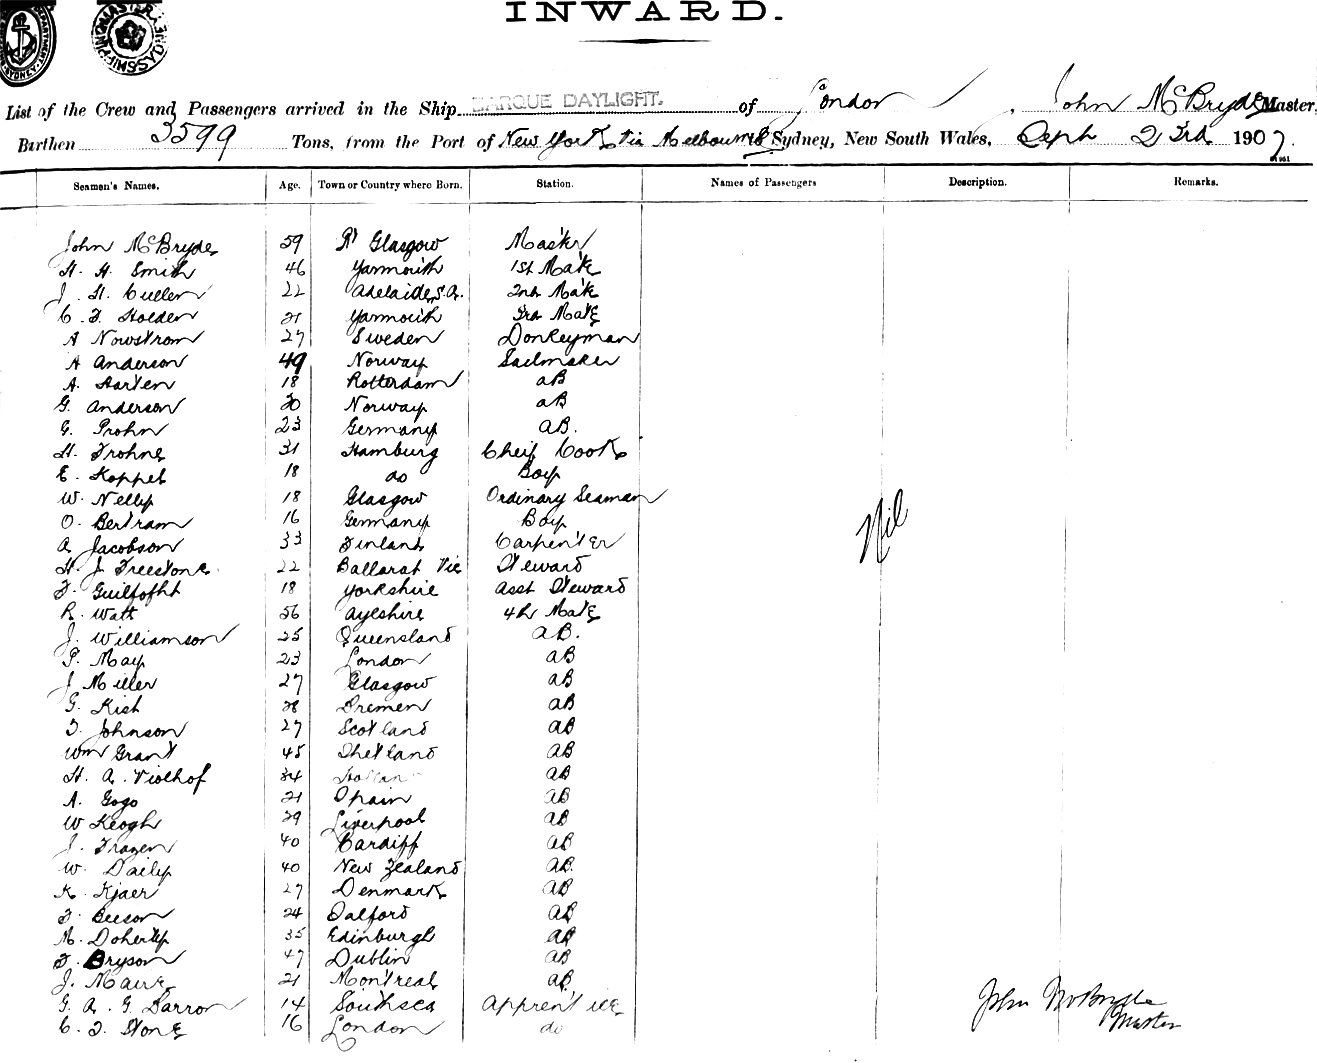 INWARD.
List of the Crew and Passengers arrived in the Ship BARQUE DAYLIGHT. of London, John McBryde Master.
Burthen 3599 Tons, from the Port of New York via Melbourne Sydney, New South Wales, Sept 23rd 1907.
Seamen's Names. Age. Town or Country where Born. Station. Names of Passengers Description. Remarks.
John McBryde 59 Pt Glasgow Master
H. H. Smith 46 Yarmouth 1st Mate
J. H. Cullen 22 Adelaide S.A. 2nd Mate
C. F. Holden 21 Yarmouth 3rd Mate
A Nowstrom 27 Sweden Donkeyman
A Anderson 49 Norway Sailmaker
A. Harten 18 Rotterdam AB
G. Anderson 20 Norway AB
G. Prohn 23 Germany AB.
H. Frohne 31 Hamburg Cheif Cook
E. Koppel 18 do Boy
W. Nelly 18 Glasgow Ordinary Seaman
O. Bertram 16 Germany Boy
A. Jacobson 33 Finland Carpenter
Nil
H. J. Freestone 22 Ballarat Vic Steward
F. 18 Yorkshire Asst Steward
R. Watt 56 Ayeshire 4th Mate
J. Williamson 25 Queensland AB.
P. May 23 London AB
J Miller 27 Glasgow AB
G. Kish 28 Bremen AB
D. Johnson 27 Scotland AB
Wm Grant 45 Shetland AB
H. A. Violhof 34 AB
A. Gogo 21 Spain AB
W Keogh 29 Liverpool AB
J. Frazer 40 Cardiff AB
W. Daily 40 New Zealand AB.
K. Kjaer 27 Denmark AB
F. Beeson 24 Salford AB
M. Doherty 35 Edinburgh AB
F. Bryson 47 Dublin AB
J. 21 Montreal AB
G. A. G. Barron 14 Southsea Apprentice
C. F. Stone 16 London do
John McBryde
Master